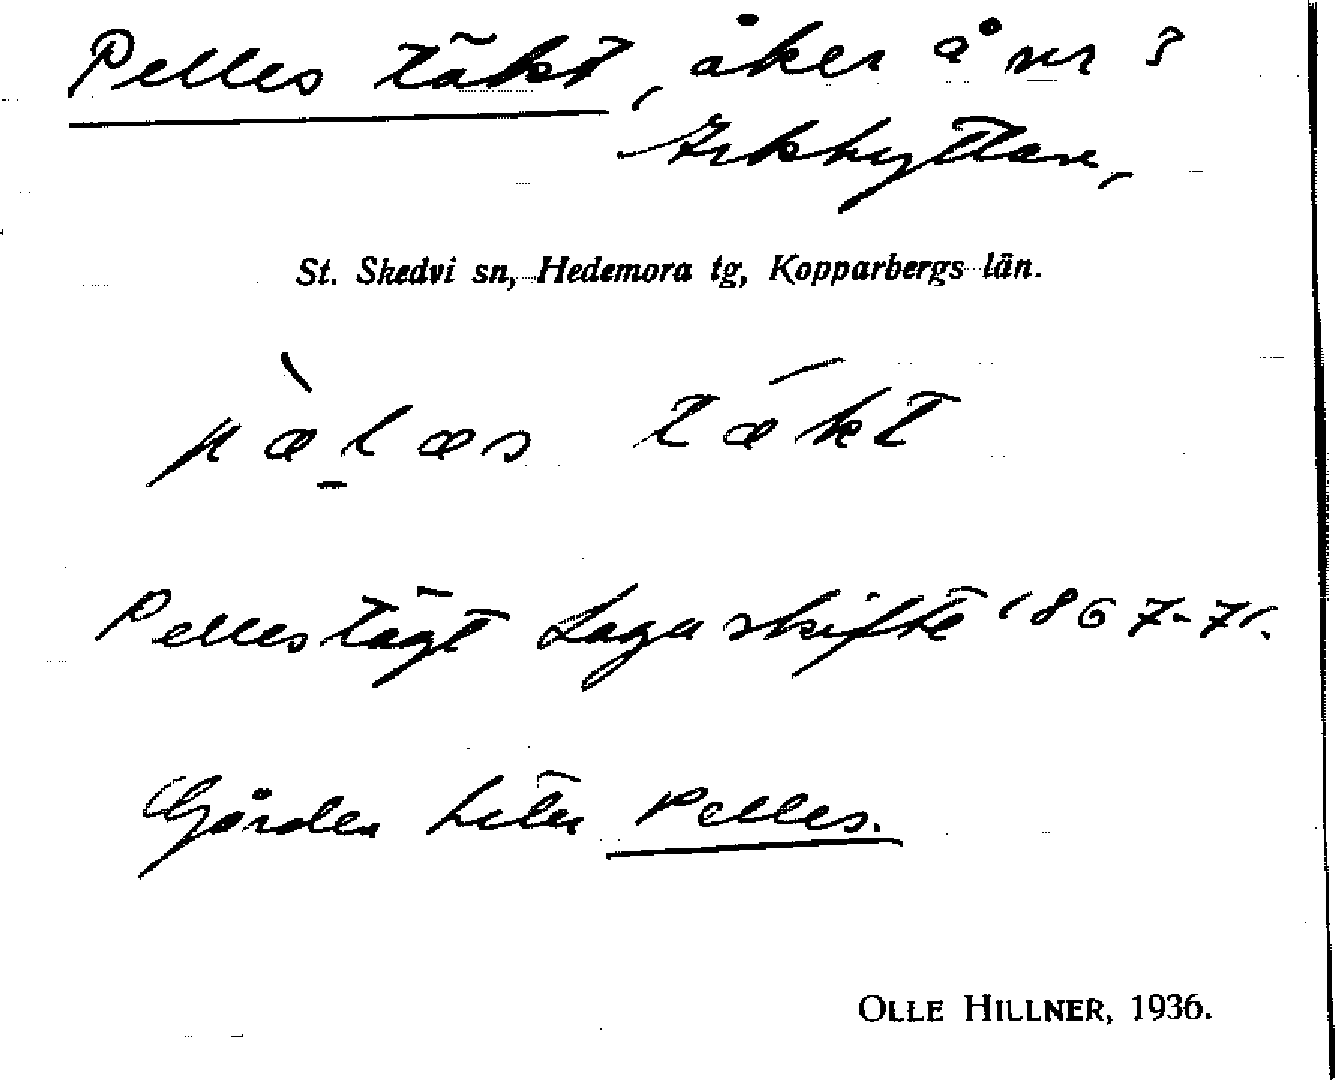 Pelles täkt, åker å nr 3
Arkhyttan,
St. Skedvi sn, Hedemora tg, Kopparbergs län.
pæ̀l̠æs tǽkt
Pellestägt Laga skifte 1867-71.
Gården heter Pelles.
OLLE HILLNER, 1936.